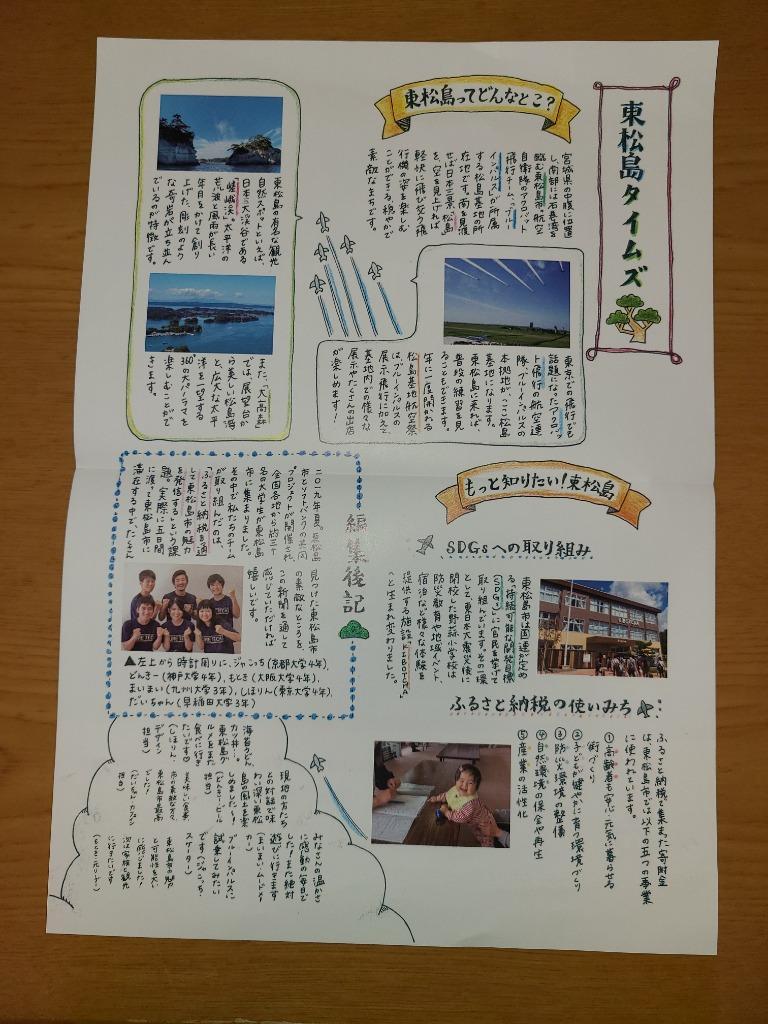 東松島タイムズ
東松島ってどんなとこ?
宮城県の中腹に位置
し、南部には石巻湾を
臨む東松島市。航空
自衛隊のアクロバット
飛行チーム、「ブルー
インパルス」が所属
する松島基地の所
在地です。南を見渡
せば日本三景松島
を、空を見上げれば
軽快に飛び交う飛
行機の姿を楽しむ
ことができる穏やかで
素敵なまちです。
東京での飛行でも
話題になったアクロバッ
ト飛行の航空連
隊、ブルーインパルスの
本拠地が、ここ松島
基地になります。
東松島に来れば、
普段の練習を見
ることもできます。
年に一度開かれる
松島基地航空祭
は、ブルーインパルスの
展示飛行に加えて
基地内での様々な
展示やたくさんの出店
が楽しめます!
東松島の有名な観光
自然スポットといえば、
日本三大渓谷である
嵯峨渓。太平洋の
荒波と風雨が長い
年月をかけて創り
上げた、彫刻のよう
な奇岩が立ち並ん
でいるのが特徴です。
また、「大高森」
では、展望台か
ら美しい松島湾
と、広大な太平
洋を一望する
360°の大パノラマを
楽しむことがで
きます。
もっと知りたい!東松島
SDGsへの取り組み
東松島市は国連が定め
る「持続可能な開発目標
(SDGs)」に官民を挙げて
取り組んでいます。その一環
として、東日本大震災後に
閉校した野蒜小学校は
防災教育や地域イベント、
宿泊など様々な体験を
提供する施設「KIBOTCHA」
へと生まれ変わりました。
KIBOTCHA
ふるさと納税の使いみち
ふるさと納税で集まった寄附金
は、東松島市では以下の五つの事業
に使われています。
①高齢者も安心・元気に暮らせる
街づくり
②子どもが健やかに育つ環境づくり
③防災環境の整備
④自然環境の保全や再生
⑤産業の活性化
編集後記
二〇一九年夏。東松島
市とソフトバンクの共同
プロジェクトが開催され、
全国各地から約三十
名の大学生が東松島
市に集まりました。
その中で私たちのチーム
が取り組んだのは、
「ふるさと納税を通
して東松島市の魅力
を発信する」という課
題。実際に五日間
に渡って東松島市に
滞在する中で、たくさん
見つけた東松島市
の素敵なところを、
この新聞を通して
感じていただければ
嬉しいです。
▲左上から時計周りに、ジャこっち(京都大学4年)、
どんきー(神戸大学4年)、もとき(大阪大学4年)、
まいまい(九州大学3年)、しほりん(東京大学4年)、
だいちゃん(早稲田大学3年)
海苔うどん、
カツ丼…。
東松島グ
ルメをまた
食べに行き
たいです♡
(しほりん・
デザイン
担当)
現地の方たち
との対話で味
わい深い東松
島の風土を楽
しめました〜!
みなさんの温かさ
に感動の毎日で
した!また絶対
遊びに行きます
(まいまい・ムードメー
カー)
ブルーインパルスに
試乗してみたい
です(ジャこっち・
スケーター)
美味しい食事、
市の素敵な方々、
東松島市最高
でした!
東松島市の魅力
と可能性を大い
に感じました!
次は家族と観光
に行きたいです